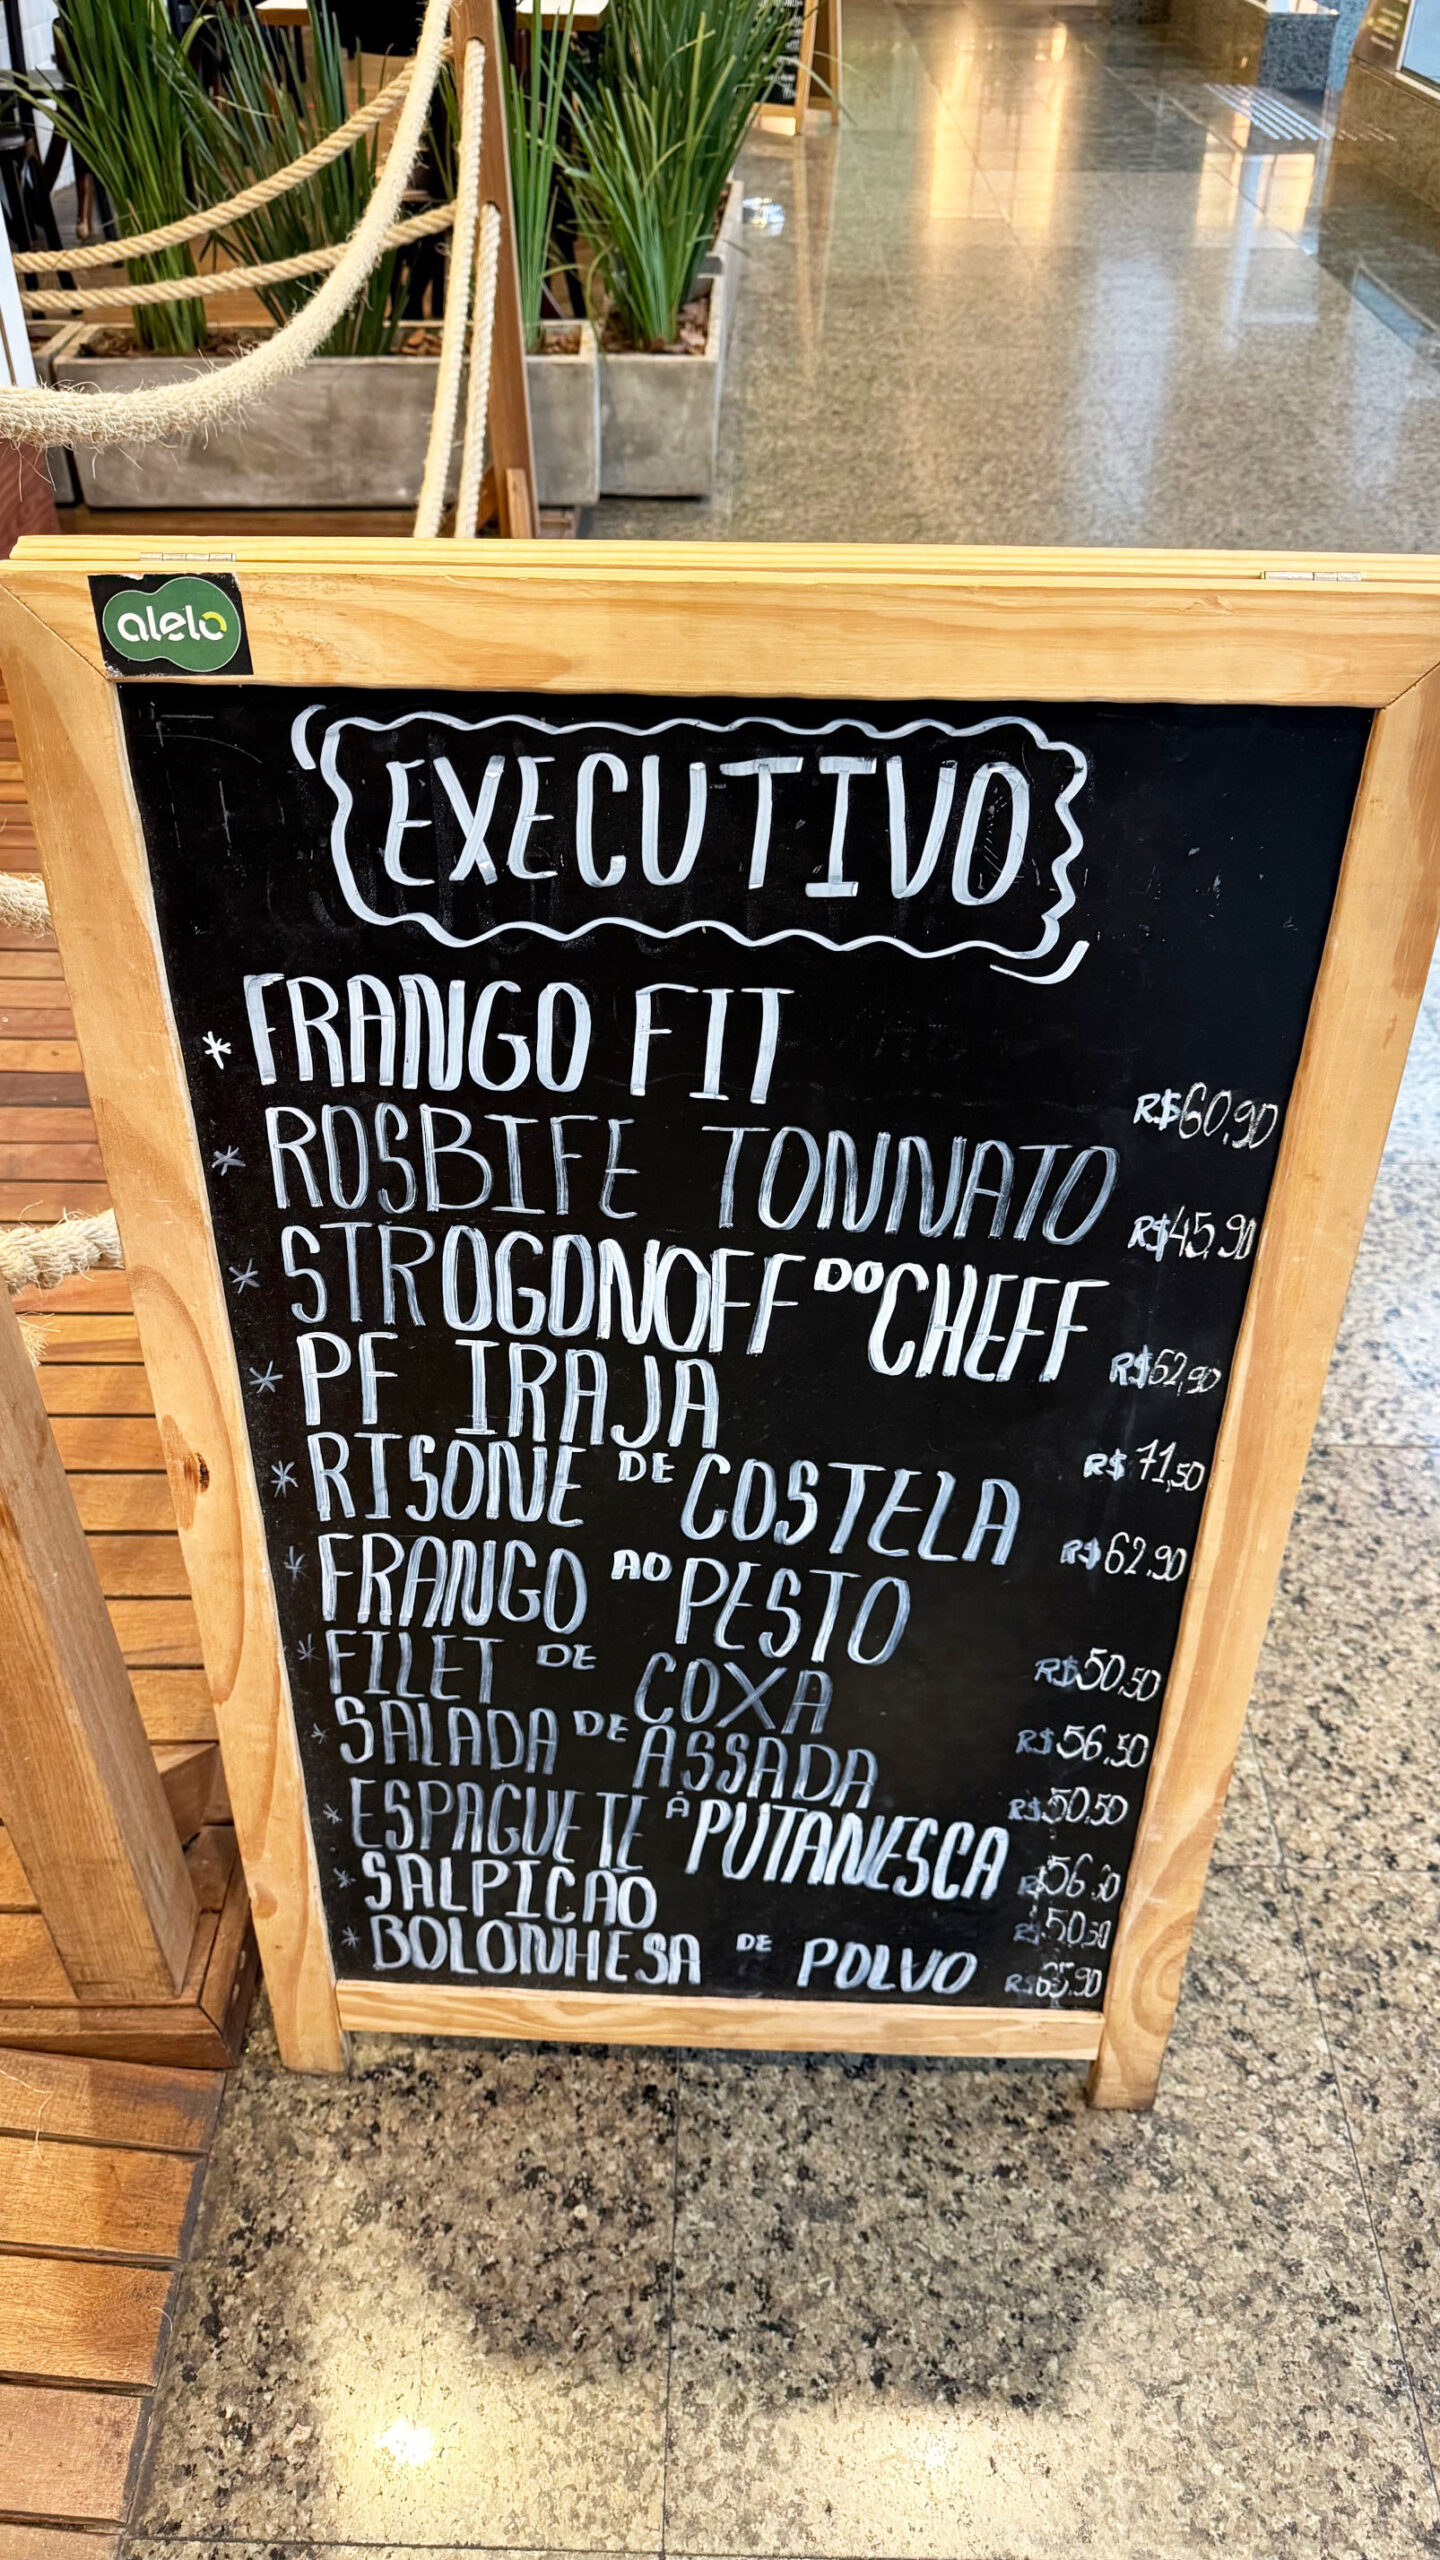 alelo
EXECUTIVO
* FRANGO FIT R$60,90
* ROSBIFE TONNATO R$45,90
* STROGONOFF DO CHEFF R$62,90
* PF IRAJA R$71,50
* RISONE DE COSTELA R$62,90
* FRANGO AO PESTO R$50,50
* FILET DE COXA R$56,50
* SALADA DE ASSADA R$50,50
* ESPAGUETE À PUTANESCA R$56,30
* SALPICÃO R$50,50
* BOLONHESA DE POLVO R$65,90